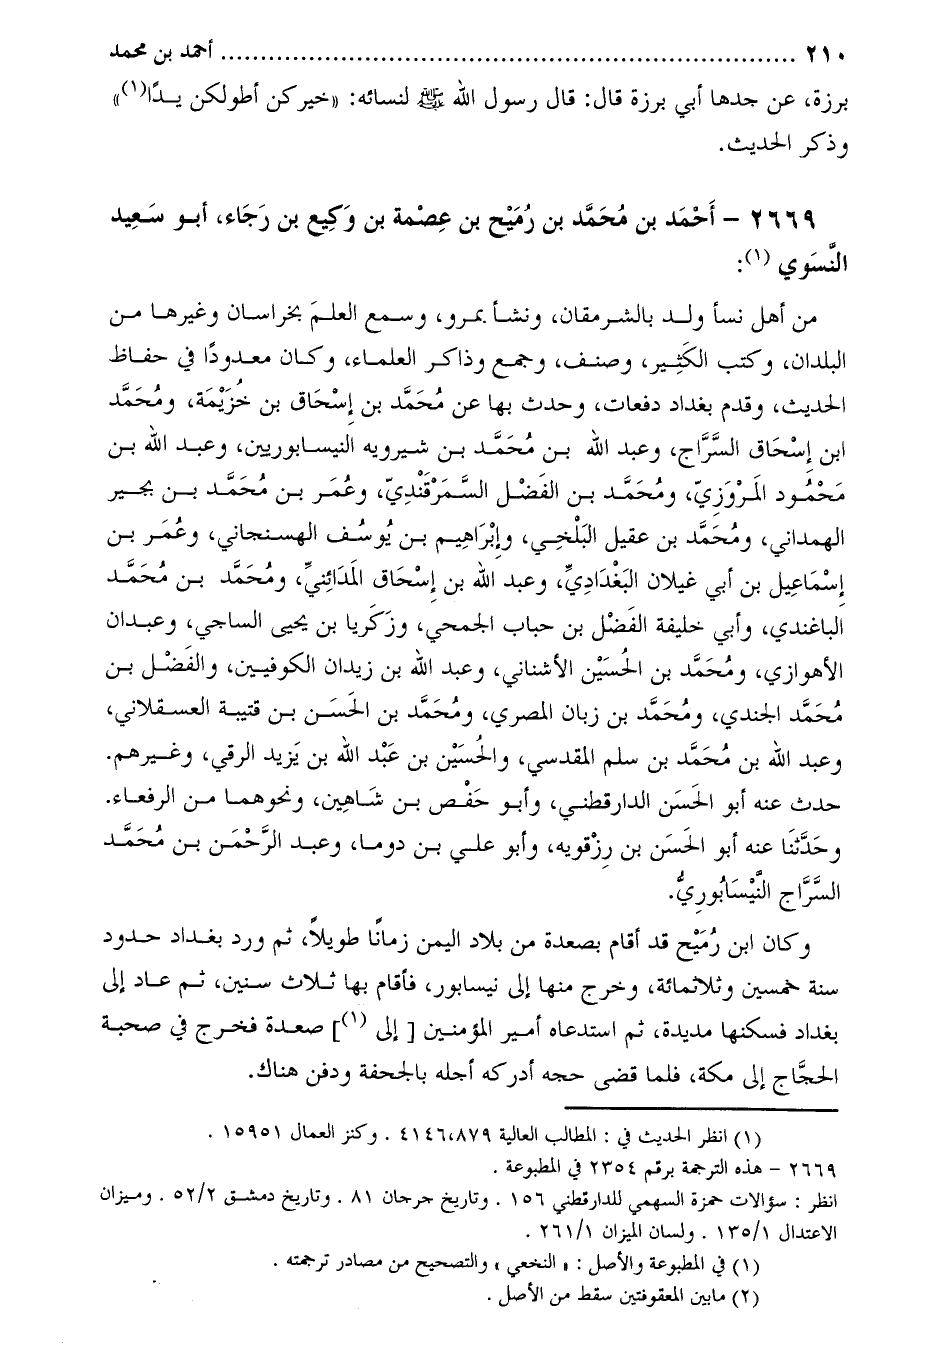 ٢١٠ ........................................................................ أحمد بن محمد
برزة، عن جدها أبي برزة قال: قال رسول الله ﷺ لنسائه: «خيركن أطولكن يـدًا(١)»
وذكر الحديث.
٢٦٦٩ – أَحْمَد بن مُحَمَّد بن رُمَيْح بن عِصْمة بن وَكِيع بن رَجَاء، أبـو سَـعِيد
النَّسَوي (١):
من أهل نسأ ولـد بالشـرمقان، ونشـأ بمـرو، وسـمع العلمَ بخراسـان وغيرهـا مـن
البلدان، وكتب الكَثِير، وصنف، وجمع وذاكـر العلمـاء، وكـان معـدودًا في حفـاظ
الحديث، وقدم بغداد دفعات، وحدث بها عن مُحَمَّد بن إِسْحَاق بن خُزَيْمَة، ومُحَمَّد
ابن إِسْحَاق السَّرَّاج، وعبد الله بـن مُحَمَّـد بـن شيرويه النيسـابوريين، وعبـد الله بـن
مَحْمُـود المَرْوَزِيّ، ومُحَمَّـد بـن الفَضْـل السَّـمَرْقَنْدِيّ، وعُمَـر بـن مُحَمَّـد بـن بجـير
الهمداني، ومُحَمَّد بن عقيل البَلْخِـي، وإِبْرَاهِيـم بـن يُوسُـف الهسـنجاني، وعُمَـر بـن
إِسْمَاعِيل بن أبي غيلان البَغْدَادِيِّ، وعبد الله بن إِسْحَاق المَدَائِنيِّ، ومُحَمَّد بـن مُحَمَّـد
الباغندي، وأبي خليفة الفَضْل بن حباب الجمحي، وزَكَرِيا بن يحيى الساجي، وعبـدان
الأهوازي، ومُحَمَّد بن الحُسَيْن الأشناني، وعبد الله بن زيدان الكوفيـين، والفَضْـل بـن
مُحَمَّد الجندي، ومُحَمَّد بن زبان المصري، ومُحَمَّد بن الحَسَـن بـن قتيبة العسـقلاني،
وعبد الله بن مُحَمَّد بن سلم المقدسي، والحُسَيْن بن عَبْد الله بن يَزِيد الرقي، وغيـرهم.
حدث عنه أبو الحَسَن الدارقطنـي، وأبـو حَفْـص بـن شَـاهِين، ونحوهمـا مـن الرفعـاء.
وحَدَّثَنَا عنه أبو الحَسَن بن رِزْقويه، وأبو علي بـن دومـا، وعبـد الرَّحْمَـن بـن مُحَمَّـد
السَّرَّاج النَّيْسَابُورِيُّ.
وكان ابن رُمَيْح قد أقام بصعدة من بلاد اليمن زمانًا طويلاً، ثم ورد بغـداد حـدود
سنة خمسين وثلاثمائة، وخرج منها إلى نيسابور، فأقام بها ثـلاث سنين، ثـم عـاد إلى
بغداد فسكنها مديدة، ثم استدعاه أمير المؤمنين [ إلى (١)] صعدة فخـرج في صحبـة
الحجَّاج إلى مكة، فلما قضى حجه أدركه أجله بالجحفة ودفن هناك.
(١) انظر الحديث في : المطالب العالية ٤١٤٦،٨٧٩ . وكنز العمال ١٥٩٥١ .
٢٦٦٩ – هذه الترجمة برقم ٢٣٥٤ في المطبوعة .
انظر : سؤالات حمزة السهمي للدارقطني ١٥٦ . وتاريخ جرجان ٨١ . وتاريخ دمشـق ٥٢/٢ . ومـيزان
الاعتدال ١٣٥/١ . ولسان الميزان ٢٦١/١ .
(١) في المطبوعة والأصل : « النخعي » والتصحيح من مصادر ترجمته .
(٢) مابين المعقوفتين سقط من الأصل .